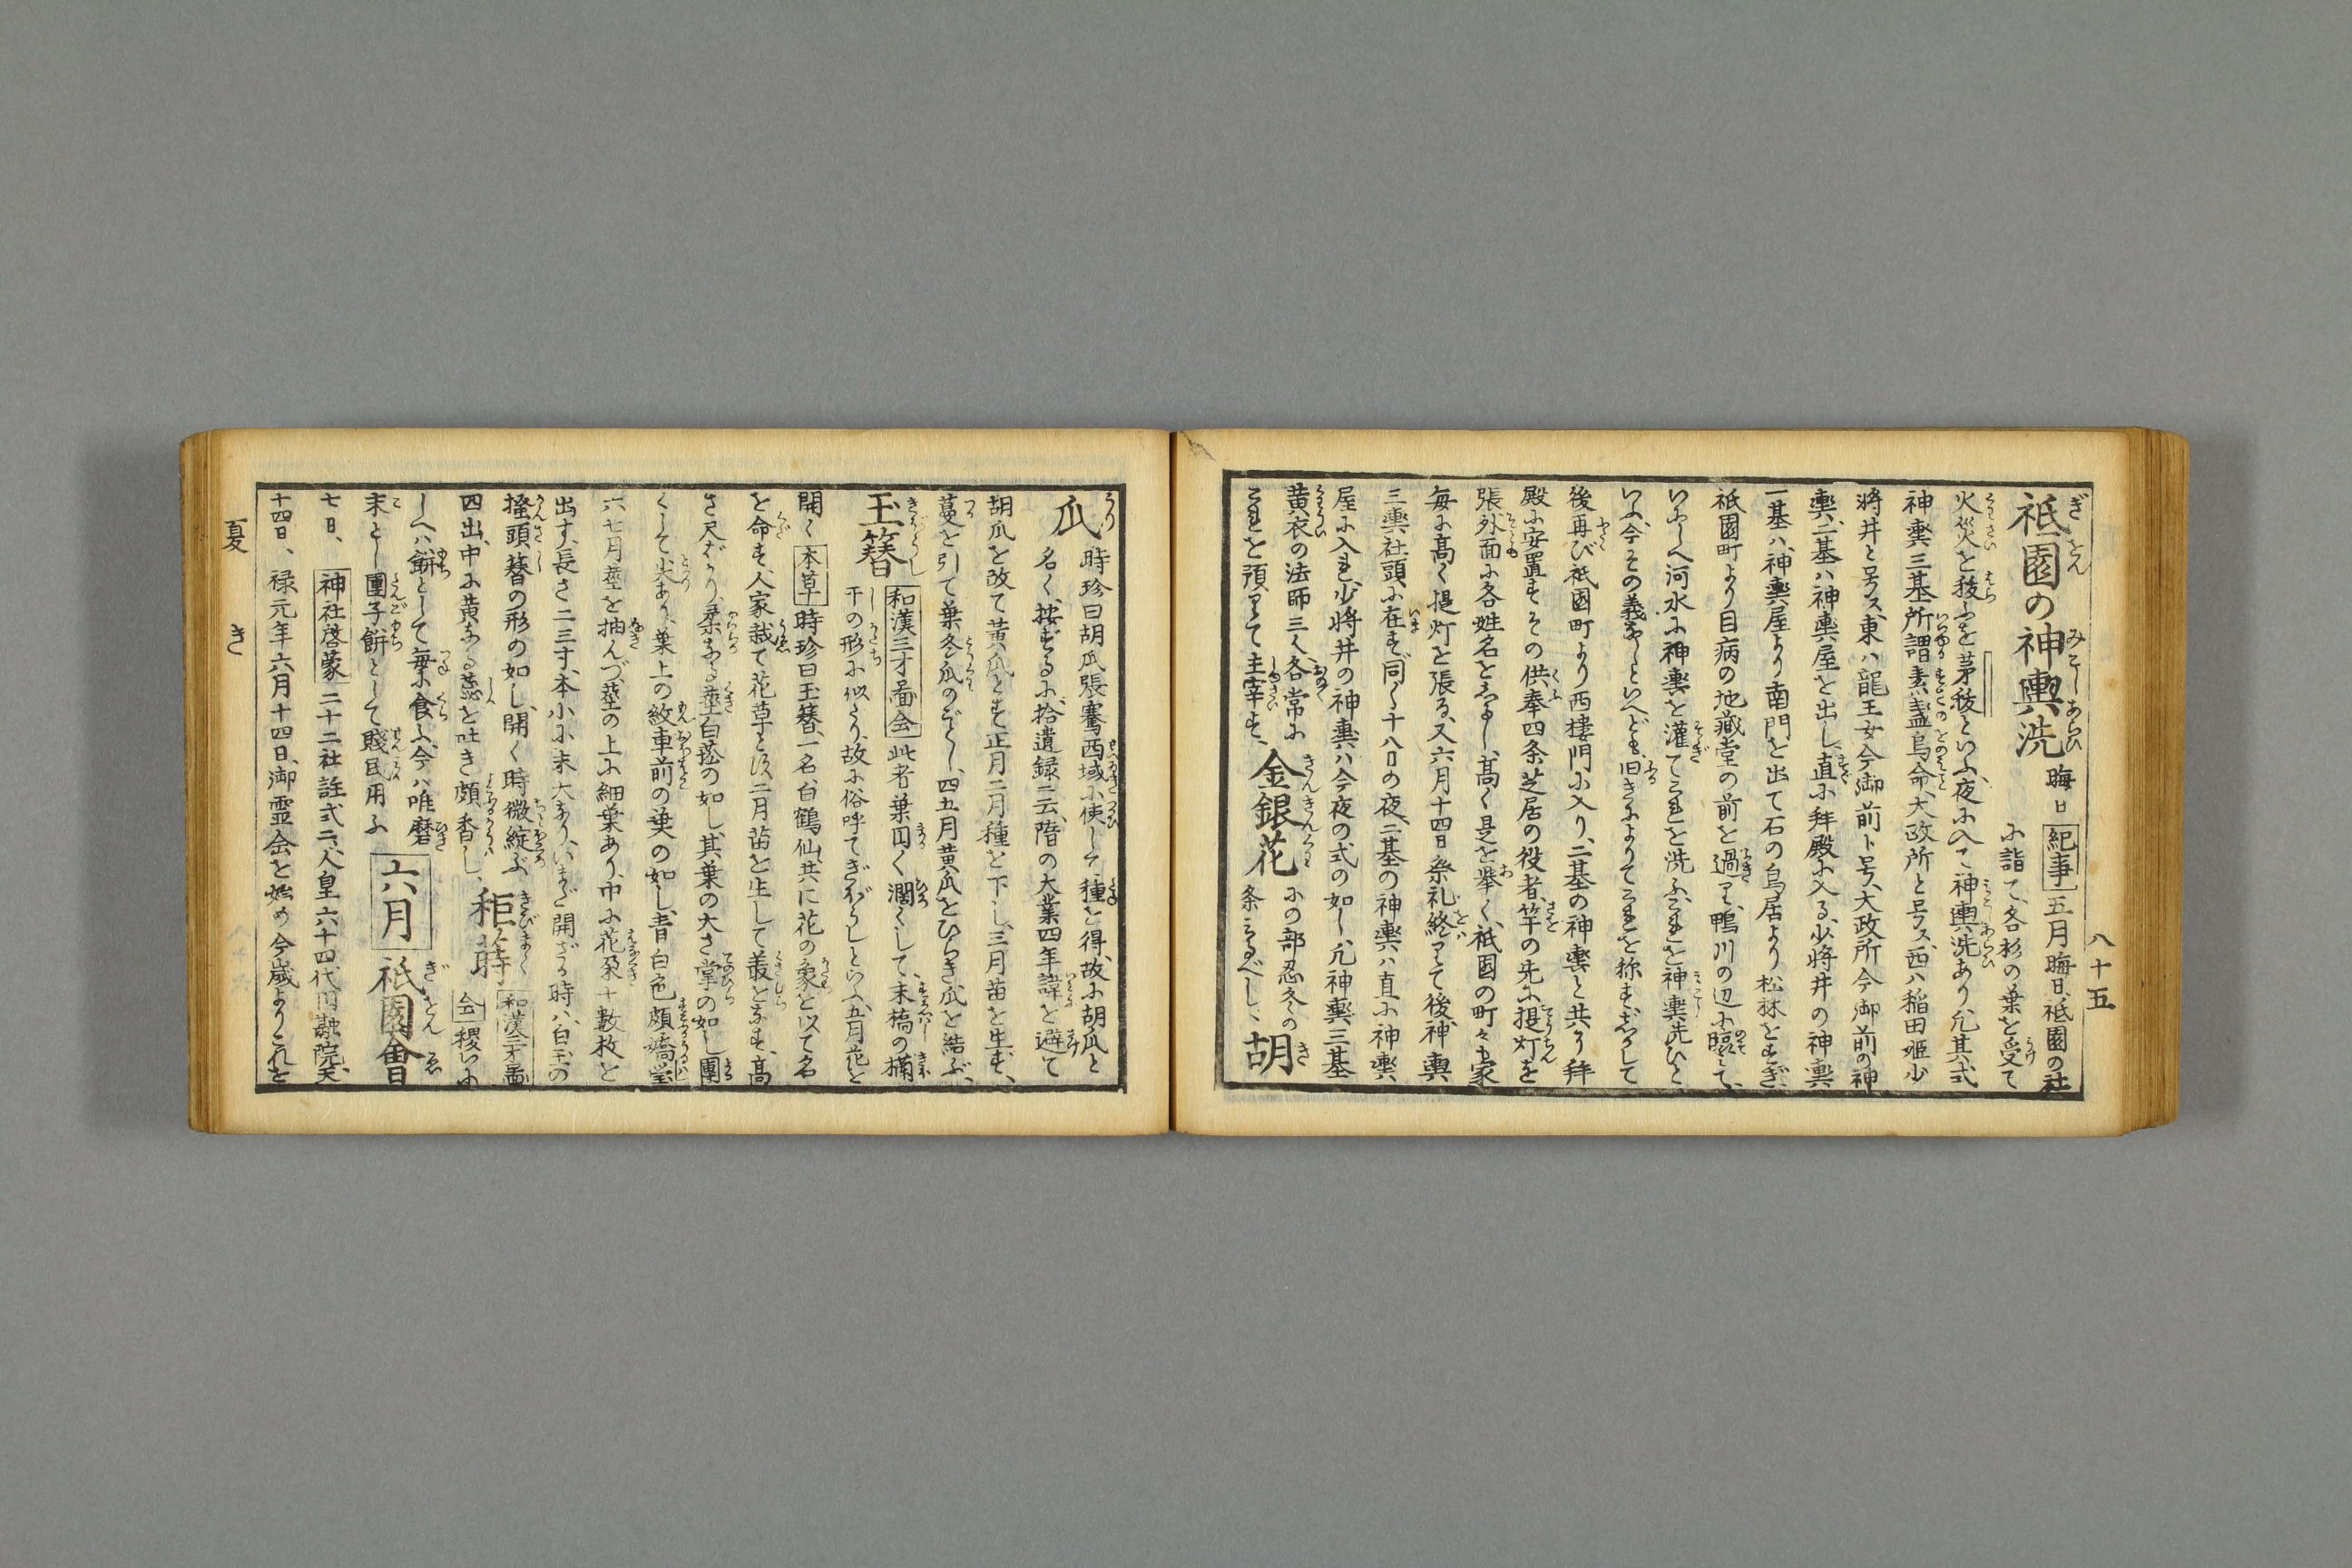 八十五
祇園の神輿洗 晦日 紀事 五月晦日、祇園の社
に詣て、各杉の葉を受て
火災を祓ふを茅秡といふ、夜に入て神輿洗あり、凡其式
神輿三基所謂素盞烏命、大政所と号ス、西ハ稲田姫少
将井と号ス、東ハ龍王女今御前ト号、大政所今御前の神
輿、二基ハ神輿屋を出し、直に拝殿に入る、少将井の神輿
一基ハ、神輿屋より南門を出て石の鳥居より松林をすぎ、
祇園町より目病の地蔵堂の前を過て、鴨川の辺に
いにしへ河水に神輿を灌てこれを洗ふ、これを神輿洗ひと
いふ、今その義なしといへども、旧きによりてこれを称す、
後再び祇園町より西楼門に入り、二基の神輿と共に拝
殿に安置す、その供奉四条芝居の役者、竿の先に提灯を
張、外面に各姓名をしるし、高く是を挙く、祇園の町々も家
毎に高く提灯を張る、又六月十四日祭礼終りて後、神輿
三輿社頭に在す、同く十八日の夜、二基の神輿ハ直に神輿
屋に入れ、少将井の神輿ハ今夜の式の如し、凡神輿三基
黄衣の法師三人、各常に
これを預りて主宰す、 金銀花 にの部忍冬の
条にみるべし、 胡
瓜 時珍曰胡瓜張騫西域に使して種を得、故に胡瓜と
名く、按ずるに、拾遺録云、隋の大業四年諱を避て
胡瓜を改て黄瓜とす、正月二月種を下し、三月苗を生ず、
蔓を引て葉冬瓜のごとし、四五月黄瓜をひらき瓜を結ぶ、
玉簪 和漢三才圖会 此者葉円く濶くして、末橋の欄
干の形に似たり、故に俗呼てぎぼうしといふ、五月花を
開く 本草 時珍曰玉簪、一名、白鶴仙、共に花の象を以て名
を命す、人家栽て花草とす、二月苗を生して叢をなす、高
さ尺ばかり、柔なる茎白菘の如し、其葉の大さ掌の如し、團
くして尖あり、葉上の紋車前の葉の如し、青白色頗嬌瑩
六七月茎を抽んづ、茎の上に細葉あり、巾に花朶十数枚を
出す、長さ二三寸、本小に末大なり、いまだ開ざる時ハ、白玉の
搔頭簪の形の如し、開く時微綻ぶ
四出、中に黄なる蕊を吐き頗香し、 秬蒔 和漢三才圖
会 稷いに
しへハ餅として毎に食ふ、今ハ唯磨
末とし團子餅として賤民用ふ 六月 祇園會
七日、 神社啓蒙 二十二社註式云、人皇六十四代円融院、天
十四日、 禄元年六月十四日、御霊会を始め今歳よりこれを
夏 き